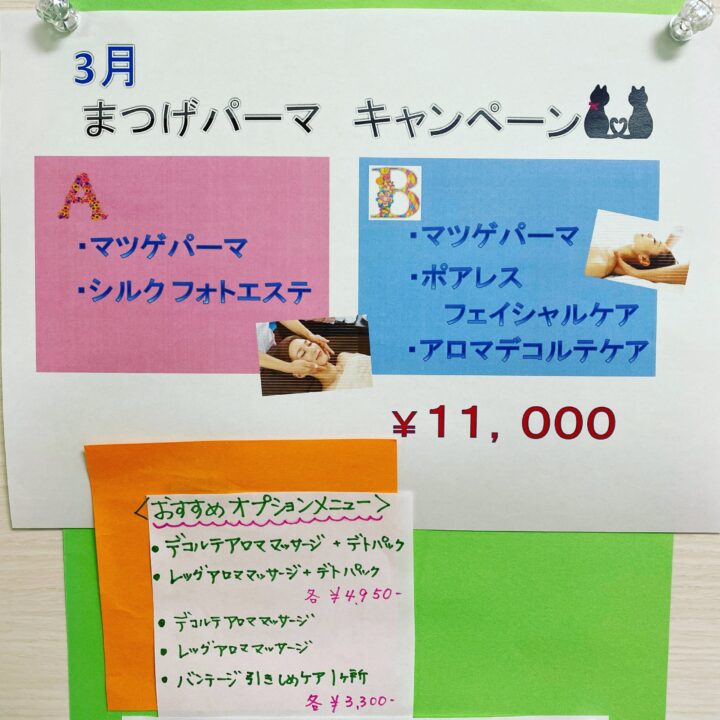 3月
まつげパーマ キャンペーン
A
・マツゲパーマ
・シルクフォトエステ
B
・マツゲパーマ
・ポアレス
フェイシャルケア
・アロマデコルテケア
¥11,000
<おすすめオプションメニュー>
• デコルテアロママッサージ + デトパック
• レッグアロママッサージ + デトパック
各 ¥4,950-
• デコルテアロママッサージ
• レッグアロママッサージ
• バンテージ引きしめケア1ヶ所
各 ¥3,300-